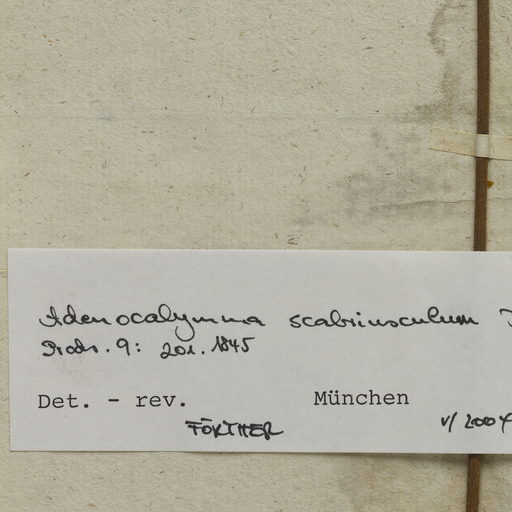 Adenocalymma scabriusculum
Prodr. 9: 201. 1845
Det. - rev. München
FÖRTHER V/2004